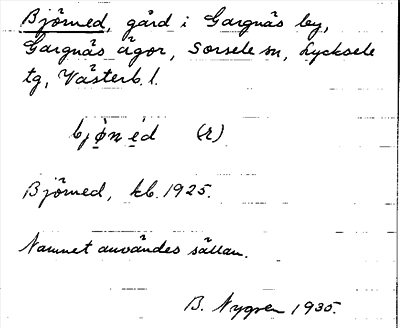 Björned, gård i Gargnäs by,
Gargnäs ägor, Sorsele sn, Lycksele
tg, Västerb. l.
bjø̀nèd (r)
Björned, kb. 1925.
Namnet användes sällan.
B. Nygren 1935.